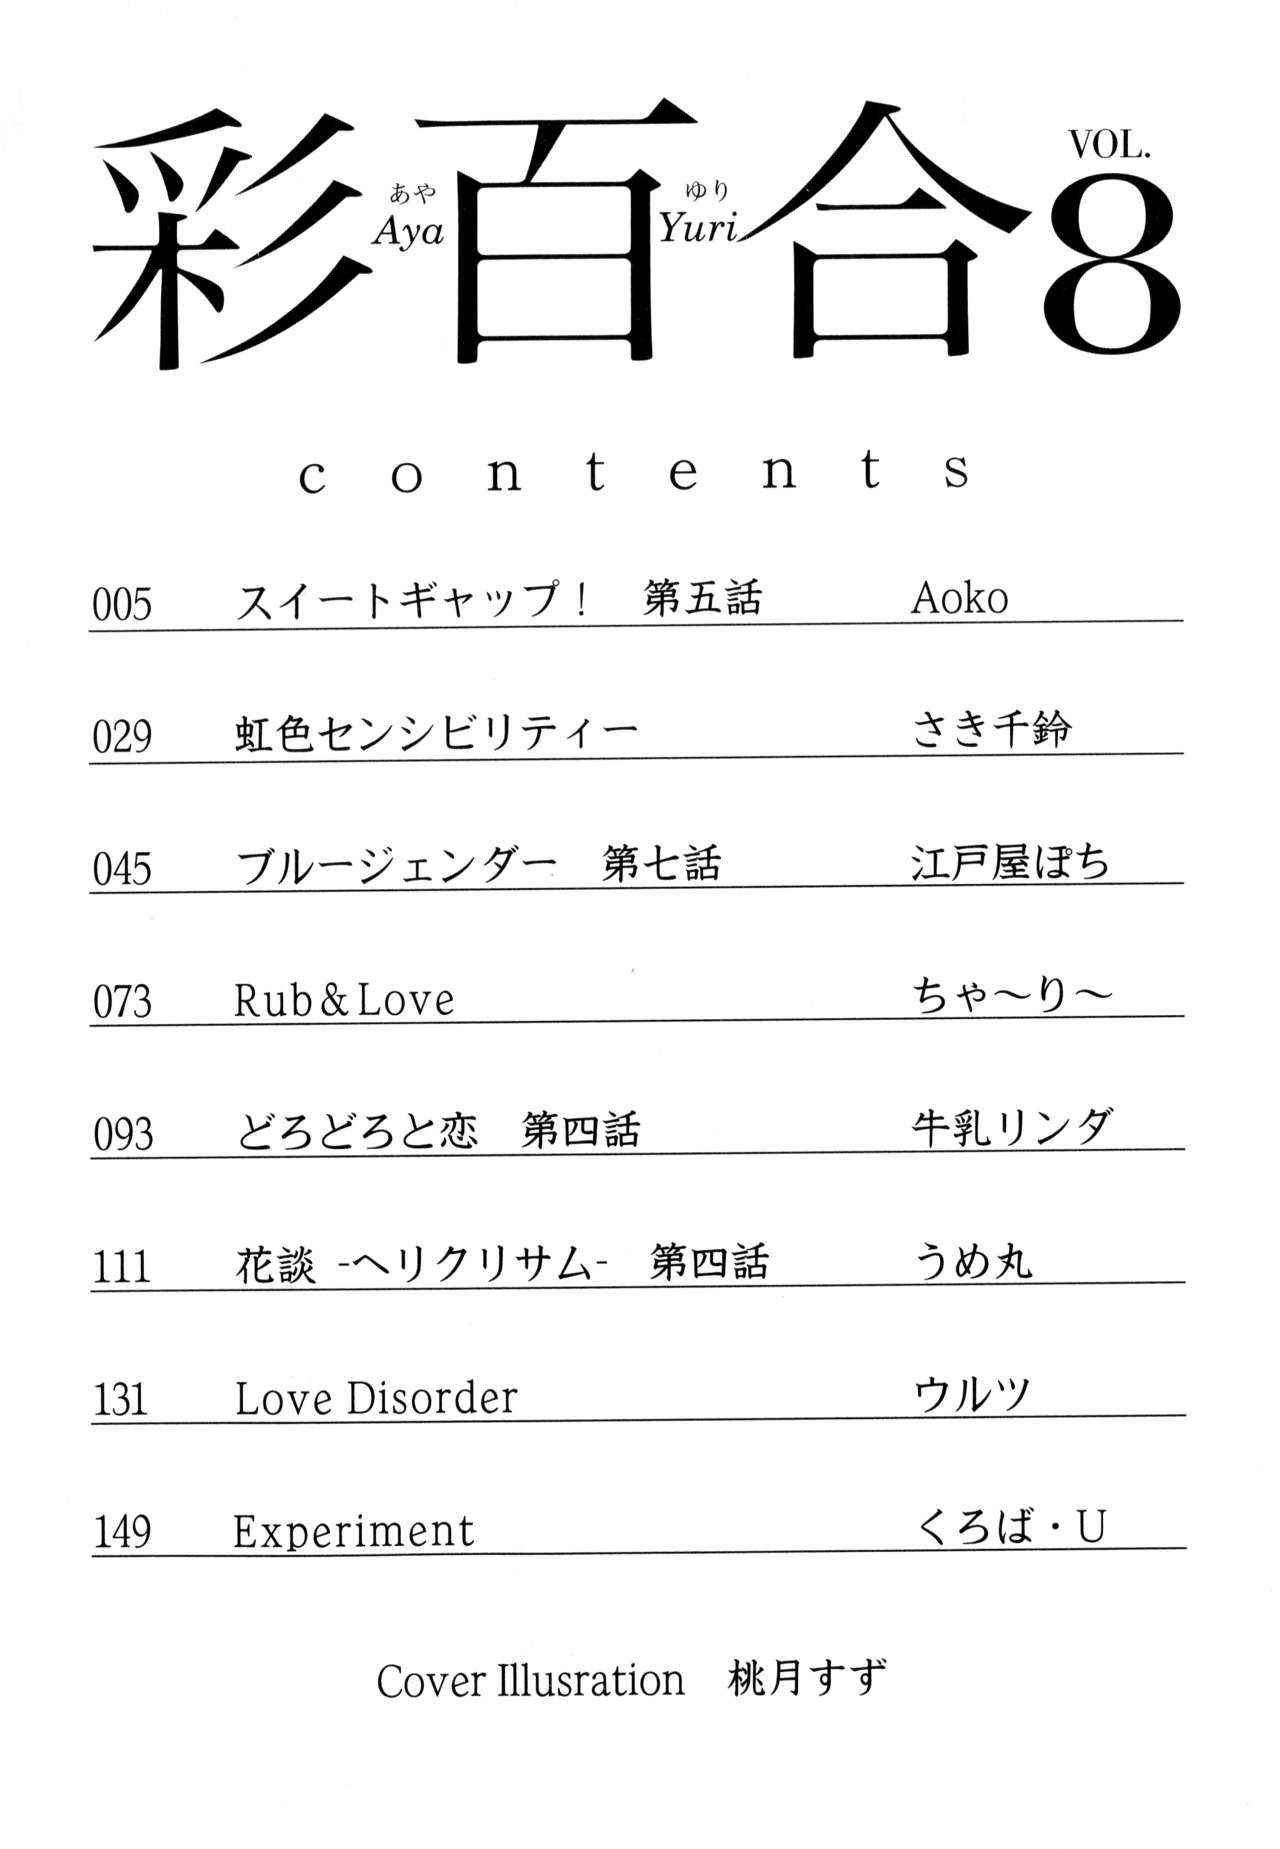 彩百合
あや
Aya
ゆり
Yuri
VOL.
8
contents
005 スイートギャップ！ 第五話 Aoko
029 虹色センシビリティー さき千鈴
045 ブルージェンダー 第七話 江戸屋ぽち
073 Rub&Love ちゃ〜り〜
093 どろどろと恋 第四話 牛乳リンダ
111 花談 -ヘリクリサム- 第四話 うめ丸
131 Love Disorder ウルツ
149 Experiment くろば・U
Cover Illusration 桃月すず